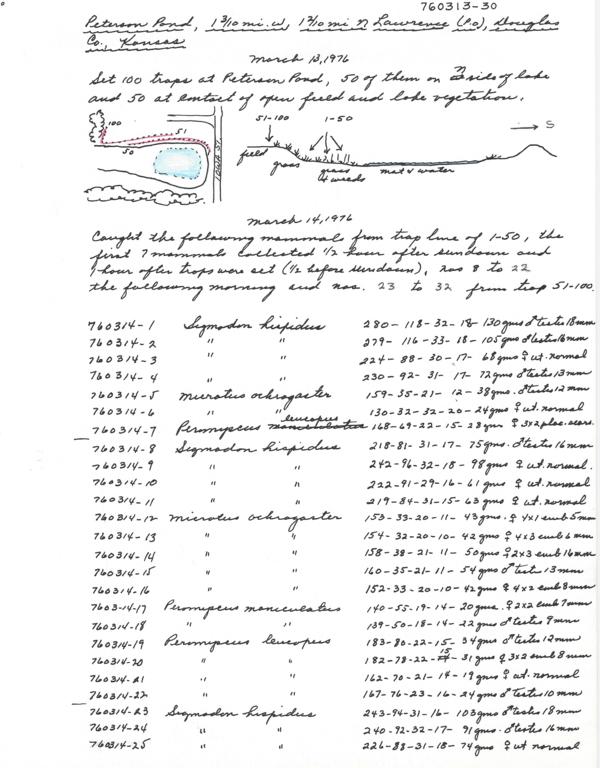 760313-30
Peterson Pond, 1 3/10 mi. W, 1 2/10 mi N Lawrence (P.O.), Douglas
Co., Kansas
March 13, 1976
Set 100 traps at Peterson Pond, 50 of them on N side of lake
and 50 at contact of open field and lake vegetation.
100
51
50
IOWA ST.
51-100
1-50
S
field
grass
grass
& weeds
mat & water
March 14, 1976
Caught the following mammals from trap line of 1-50, the
first 7 mammals collected 1/2 hour after sundown and
1 hour after traps were set (1/2 before sundown), nos 8 to 22
the following morning and nos. 23 to 32 from trap 51-100.
760314-1 Sigmodon hispidus 280-118-32-18-130gms ♂ testes 18mm
760314-2 " " 279-116-33-18-105gms ♂ testes 16mm
760314-3 " " 224-88-30-17-68gms ♀ ut. normal
760314-4 " " 230-92-31-17-72gms ♂ testes 13mm
760314-5 Microtus ochrogaster 159-35-21-12-38gms. ♂ testes 12mm
760314-6 " " 130-32-32-20-24gms ♀ ut. normal
760314-7 Peromyscus maniculatus leucopus 168-69-22-15-28gm ♀ 3x2 plac. scars.
760314-8 Sigmodon hispidus 218-81-31-17-75gms. ♂ testes 16mm
760314-9 " " 242-96-32-18-98gms ♀ ut. normal.
760314-10 " " 222-91-29-16-61gms ♀ ut. normal
760314-11 " " 219-84-31-15-63gms ♀ ut. normal
760314-12 Microtus ochrogaster 153-33-20-11-43gms. ♀ 4x1 emb 5mm
760314-13 " " 154-32-20-10-42gms ♀ 4x3 emb 6mm
760314-14 " " 158-38-21-11-50gms ♀ 2x3 emb 16mm
760314-15 " " 160-35-21-11-54gms ♂ testes 13mm
760314-16 " " 152-33-20-10-42gms ♀ 4x2 emb 8mm
760314-17 Peromyscus maniculatus 140-55-19-14-20gms. ♀ 2x2 emb 7mm
760314-18 " " 139-50-18-14-22gms ♂ testes 9mm
760314-19 Peromyscus leucopus 183-80-22-15-34gms ♂ testes 12mm
760314-20 " " 182-78-22-15-31gms ♀ 3x2 emb 8mm
760314-21 " " 162-70-21-14-19gms ♀ ut. normal
760314-22 " " 167-76-23-16-24gms ♂ testes 10mm
760314-23 Sigmodon hispidus 243-94-31-16-103gms ♂ testes 18mm
760314-24 " " 240-92-32-17-91gms. ♂ testes 16mm
760314-25 " " 226-88-31-18-74gms ♀ ut normal